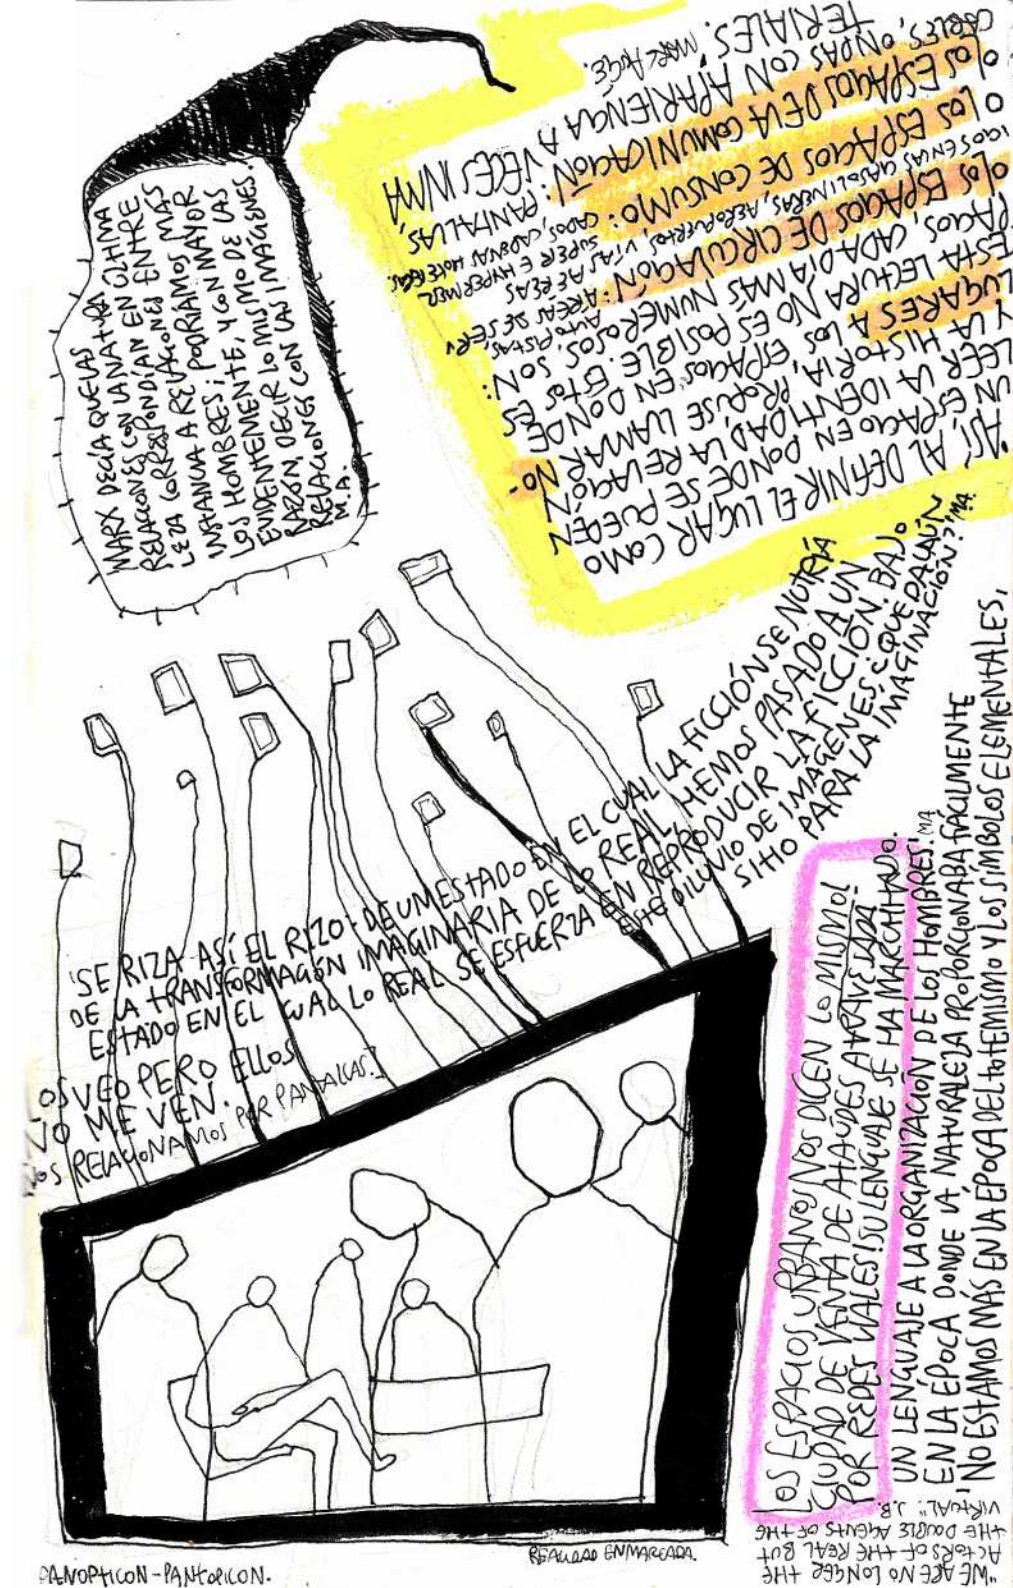 MARX DECÍA QUE LAS
RELACIONES CON LA NATURA
LEZA CORRESPONDÍAN EN ÚLTIMA
INSTANCIA A RELACIONES ENTRE
LOS HOMBRES; PODRÍAMOS MAS
EVIDENTEMENTE, Y CON MAYOR
RAZÓN, DECIR LO MISMO DE LAS
RELACIONES CON LAS IMÁGENES.
M.A.
"ASÍ, AL DEFINIR EL LUGAR COMO
UN ESPACIO EN DONDE SE PUEDEN
LEER LA IDENTIDAD, LA RELACIÓN
Y LA HISTORIA, PROPUSE LLAMAR NO-
LUGARES A LOS ESPACIOS EN DONDE
ESTA LECTURA NO ES POSIBLE. ESTOS ES
PACIOS, CADA DÍA MÁS NUMEROSOS, SON:
O LOS ESPACIOS DE CIRCULACIÓN: AUTOPISTAS,
ÁREAS DE SERV
ICIOS EN LAS GASOLINERAS, AEROPUERTOS VÍAS AÉREAS
O LOS ESPACIOS DE CONSUMO: SUPER E HYPERMER
CADOS, CADENAS HOTELERAS.
O LOS ESPACIOS DE LA COMUNICACIÓN: PANTALLAS,
CABLES, ONDAS CON APARIENCIA A VECES INMA
TERIALES. MARC AUGÉ.
'SE RIZA ASÍ EL RIZO: DE UN ESTADO EN EL CUAL LA FICCIÓN SE NUTRÍA
DE LA TRANSFORMACIÓN IMAGINARIA DE LO REAL, HEMOS PASADO A UN
ESTADO EN EL CUAL LO REAL SE ESFUERZA EN REPRODUCIR LA FICCIÓN. BAJO
ESTE DILUVIO DE IMÁGENES ¿QUEDA AÚN
SITIO PARA LA IMAGINACIÓN?' MA.
LOS VEO PERO ELLOS
NO ME VEN.
NOS RELACIONAMOS POR PANTALLAS.
LOS ESPACIOS URBANOS NOS DICEN LO MISMO!
CIUDAD DE VENTA DE ATAÚDES ATRAVESADA
POR REDES VIALES! SU LENGUAJE SE HA MARCHITADO.
UN LENGUAJE A LA ORGANIZACIÓN DE LOS HOMBRES'. MA
EN LA ÉPOCA DONDE LA NATURALEZA PROPORCIONABA FÁCILMENTE
'NO ESTAMOS MÁS EN LA ÉPOCA DEL TOTEMISMO Y LOS SÍMBOLOS ELEMENTALES,
"WE ARE NO LONGER THE
ACTORS OF THE REAL BUT
THE DOUBLE AGENTS OF THE
VIRTUAL". J.B.
REALIDAD ENMARCADA.
PANOPTICON-PANTOPICON.